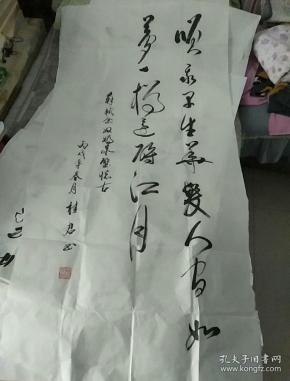 咲我早生華髮人間如
夢一樽還酹江月
蘇軾念奴嬌赤壁懷古
丙戌年春月桂君书
孔夫子旧书网
www.kongfz.com